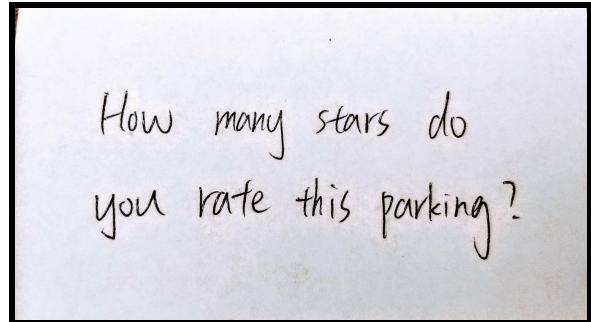 How many stars do
you rate this parking?